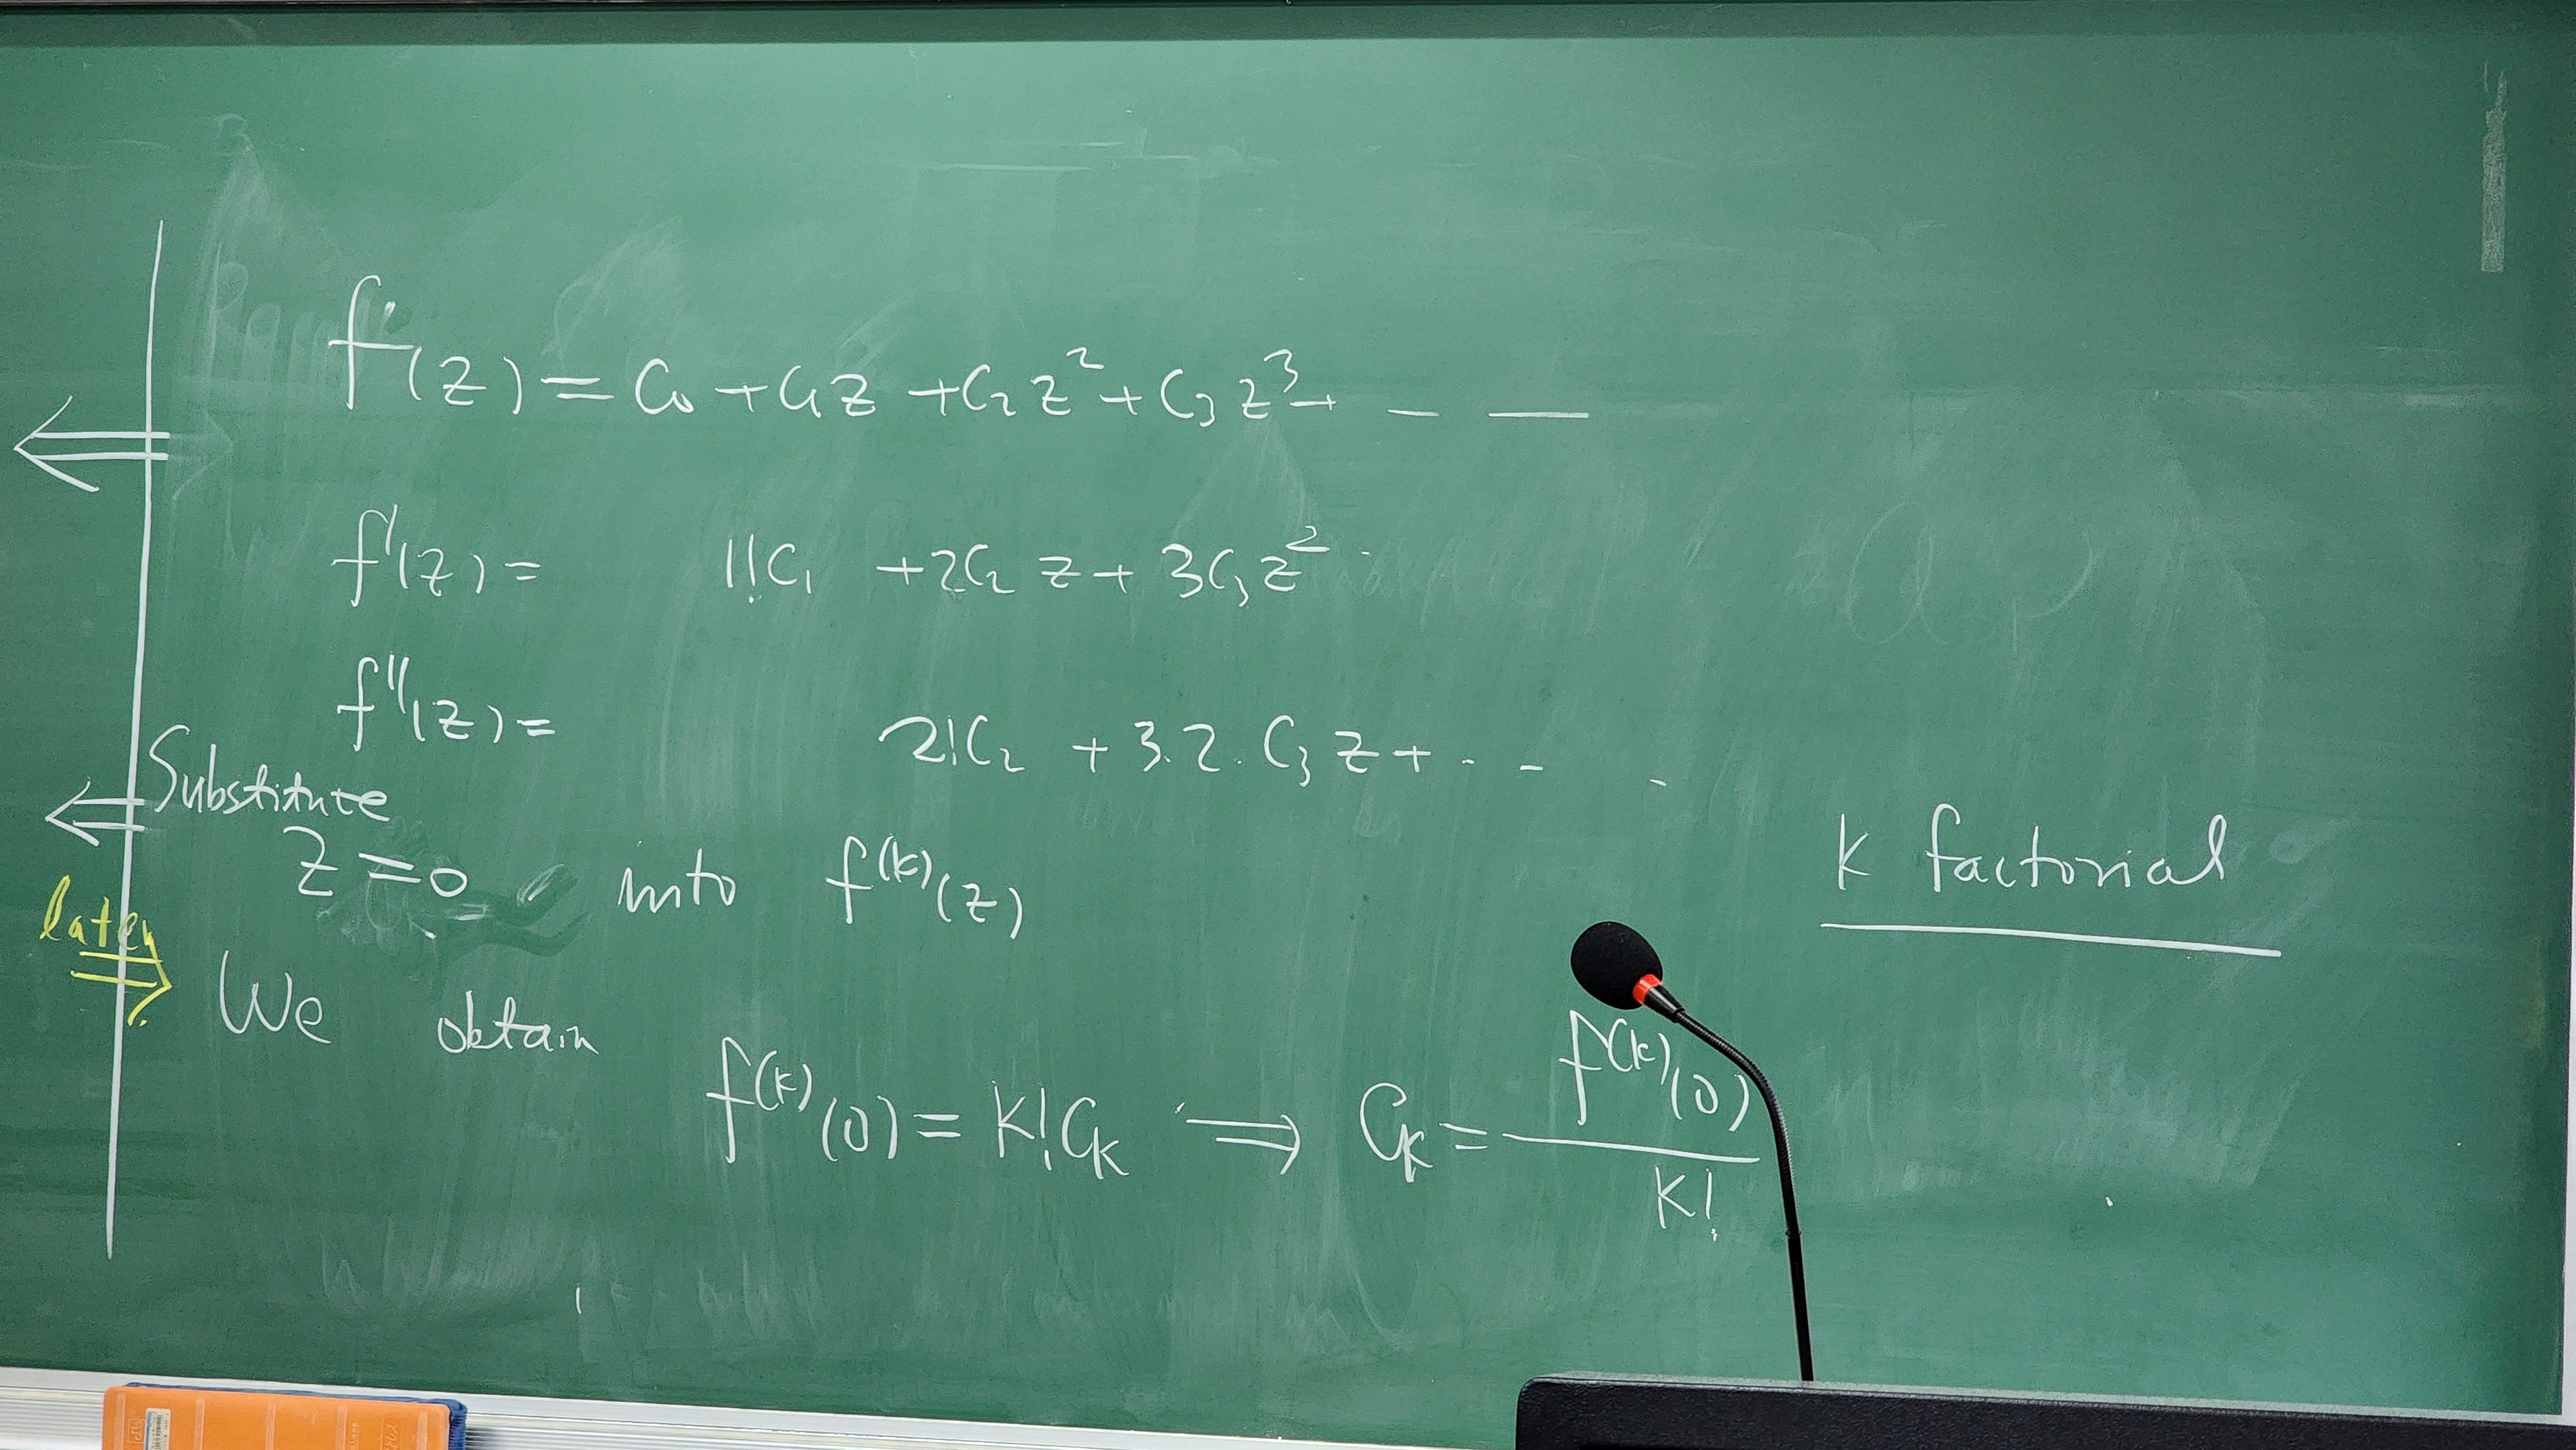 f(z) = C₀ + C₁z + C₂z² + C₃z³ + - —
f'(z) = 1!C₁ + 2C₂ z + 3C₃z²
f''(z) = 2!C₂ + 3.2.C₃ z + . - .
Substitute
z = 0 into f⁽ᵏ⁾(z)
K factorial
later
We obtain
f⁽ᵏ⁾(0) = K!Cₖ ⟹ Cₖ = f⁽ᵏ⁾(0) / K!